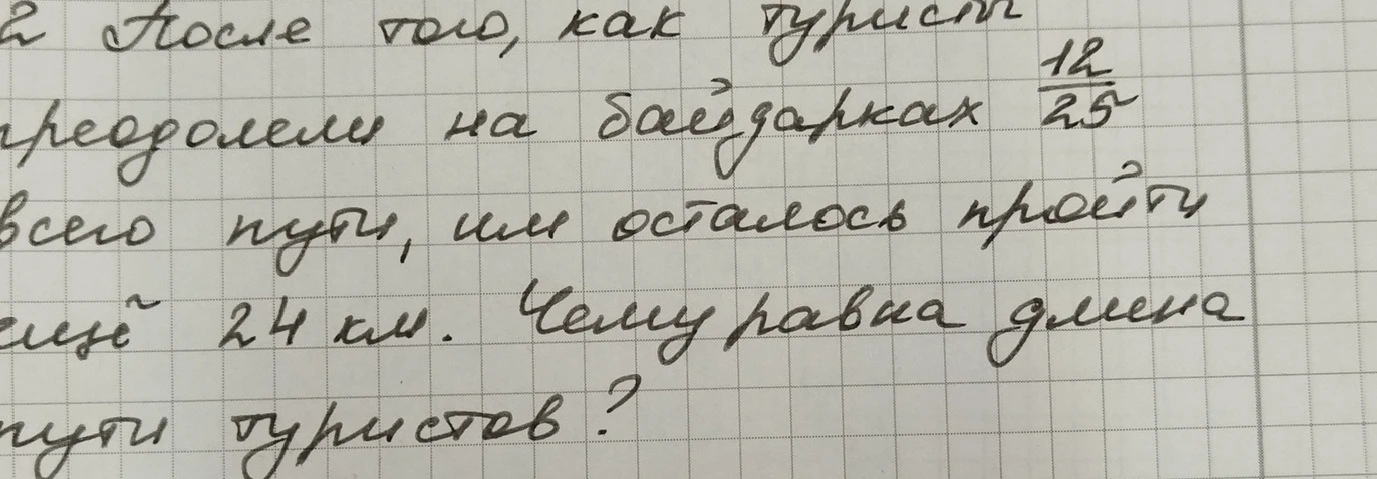 2 После того, как турист
преодолели на байдарках 12/25
всего пути, им осталось пройти
ещё 24 км. Чему равна длина
пути туристов?